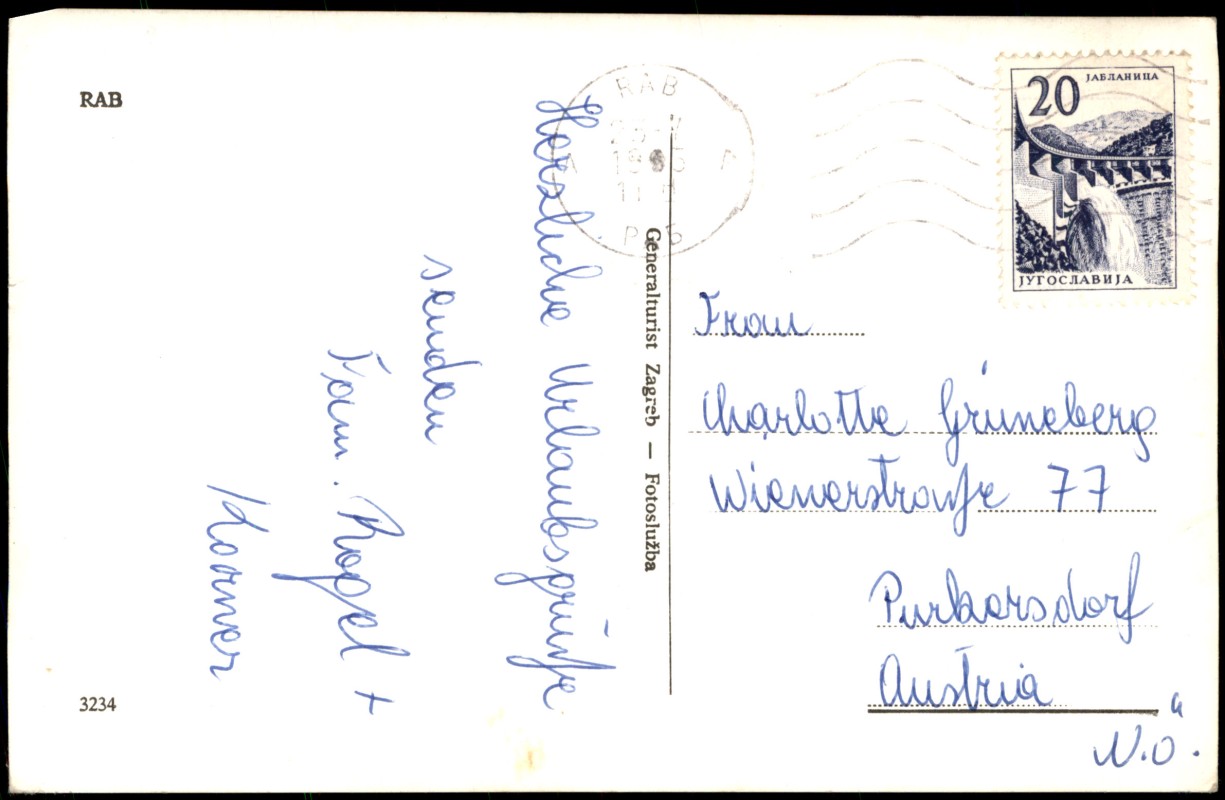 RAB
Herzliche Urlaubsgrüße
senden
Fam. Rogel +
Korner
3234
Generalturist Zagreb — Fotoslužba
RAB
20
ЈАБЛАНИЦА
ЈУГОСЛАВИЈА
Frau
Charlotte Grüneberg
Wienerstraße 77
Purkersdorf
Austria
N.Ö.